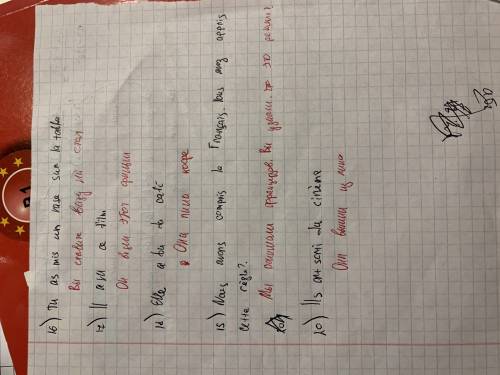 16) Tu as mis un vase sur la table
Вы ставите вазу на стол
17) Il a vu ce film
Он видел этот фильм
18) Elle a bu to café
Она пила кофе
19) Nous avons compris le Français. Vous avez appris
cette règle?
Мы понимали французов. Вы узнали, это
20) Ils ont sorti du cinéma
Они вышли из кино
B1